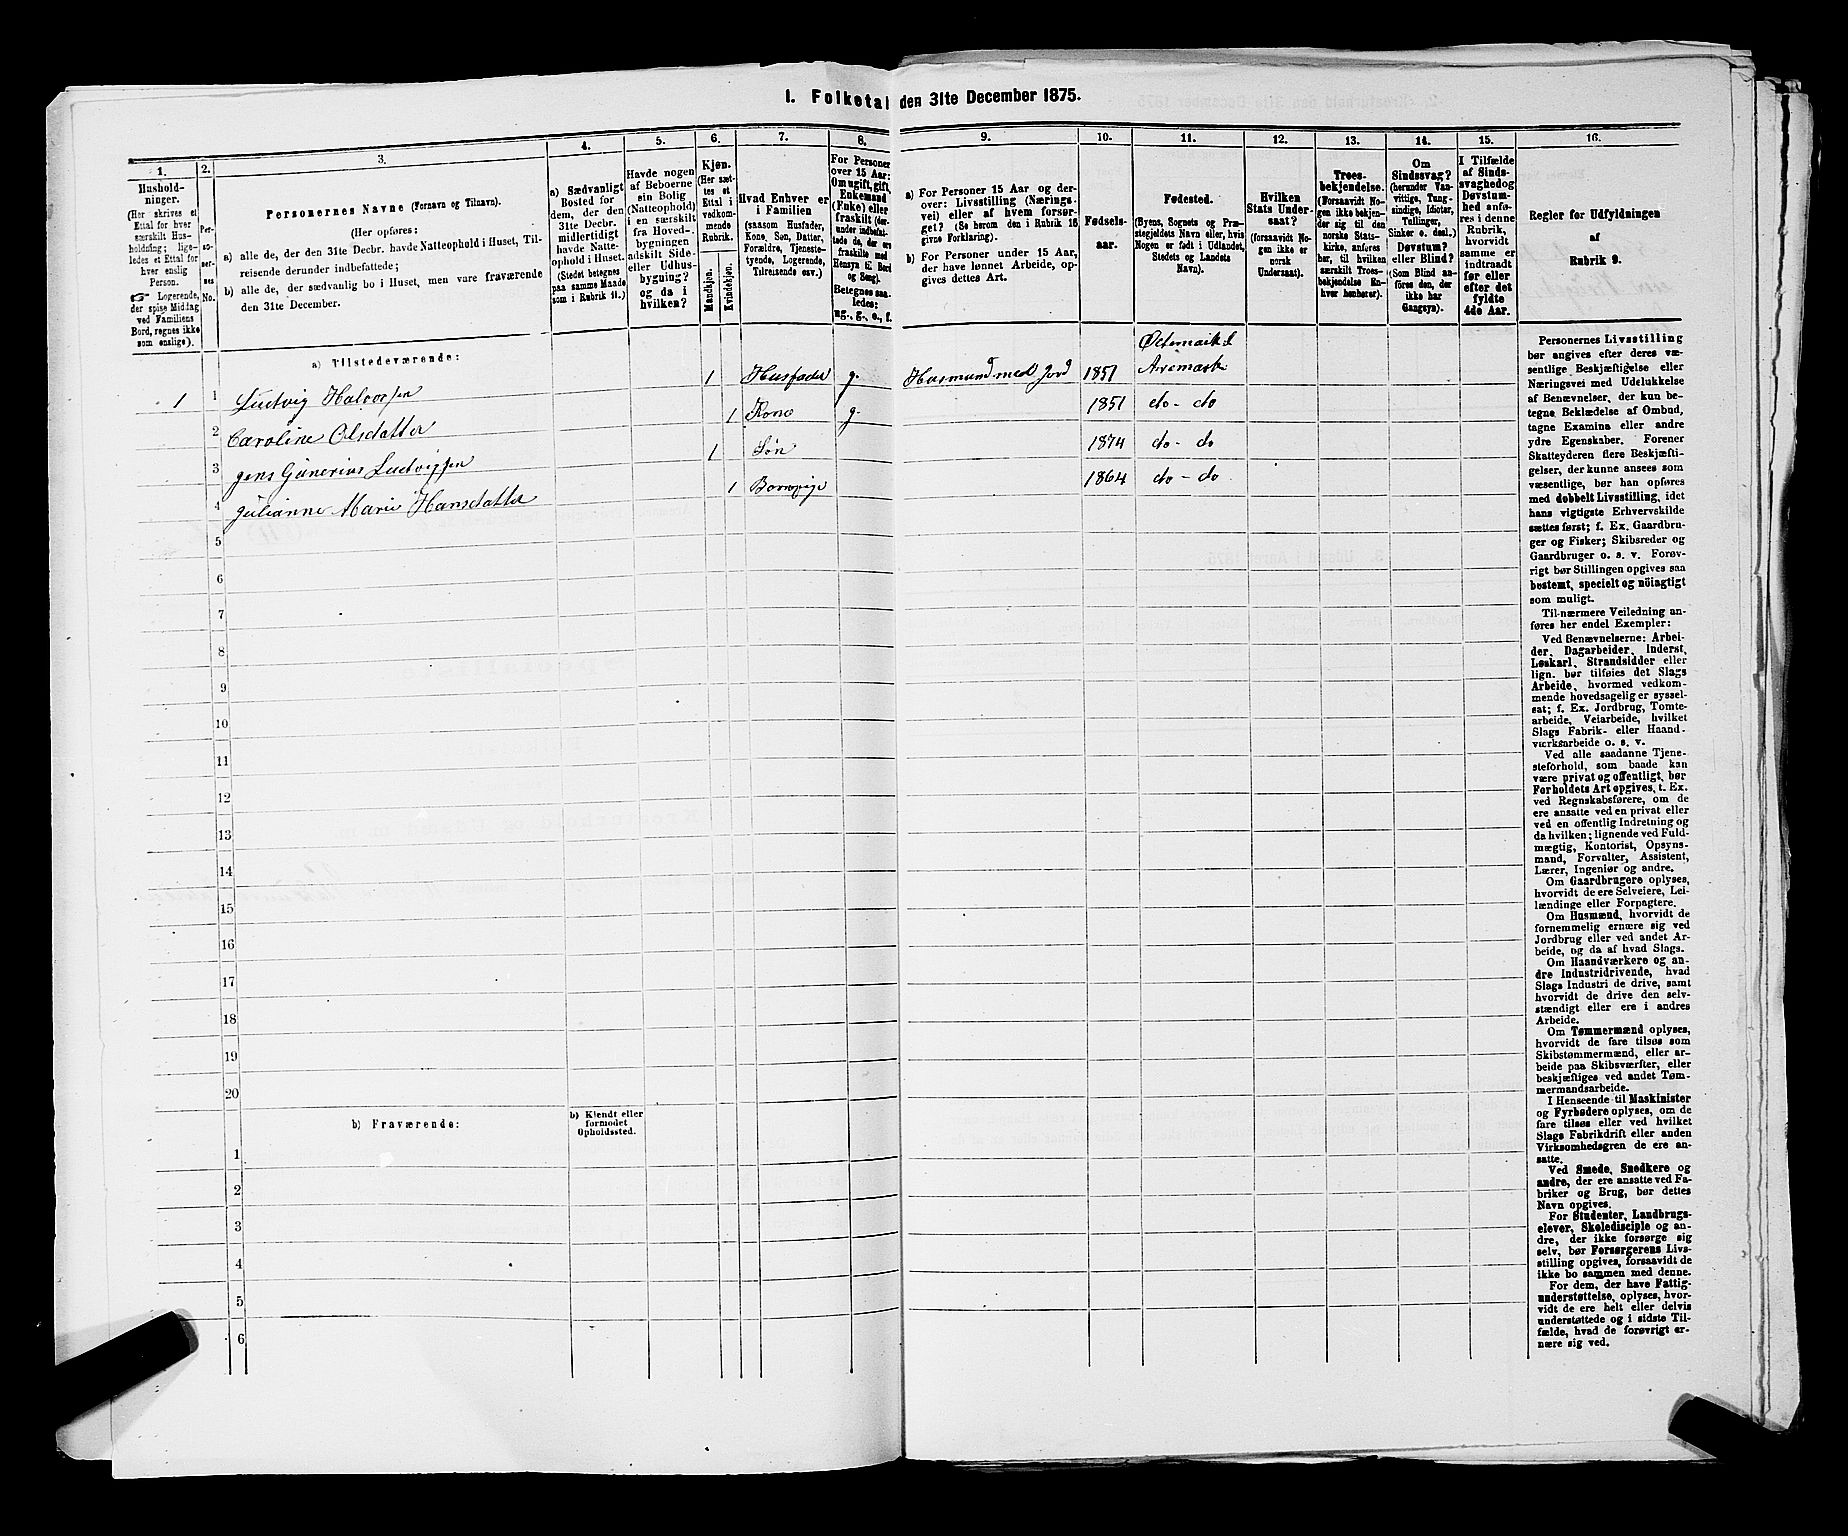 I. Folketal den 31te December 1875.
1.
Hushold-
ninger.
(Her skrives et
Ettal for hver
særskilt Hus-
holdning; lige-
ledes et Ettal for
hver enslig
Person.
☞ Logerende,
der spise Middag
ved Familiens
Bord, regnes ikke
som enslige).
2.
Per-
so-
ner-
nes
No.
3.
Personernes Navne (Fornavn og Tilnavn).
(Her opføres:
a) alle de, der den 31te Decbr. havde Natteophold i Huset, Til-
reisende derunder indbefattede;
b) alle de, der sædvanlig bo i Huset, men vare fraværende
den 31te December.
4.
a) Sædvanligt
Bosted for
dem, der den
31te Decbr.
midlertidigt
havde Natte-
ophold i Huset.
(Stedet betegnes
paa samme Maade
som i Rubrik 11.)
5.
Havde nogen
af Beboerne
ein Bolig
(Natteophold)
i en særskilt
fra Hoved-
bygningen
adskilt Side-
eller Udhus-
bygning?
og da i
hvilken?
6.
Kjøn.
(Her sæt-
tes et
Ettal i
vedkom-
mende
Rubrik.
Mandkjøn.
Kvindekjøn.
7.
Hvad Enhver er
i Familien
(saasom Husfader,
Kone, Søn, Datter,
Forældre, Tjeneste-
tyende, Logerende,
Tilreisende osv.)
8.
For Personer
over 15 Aar:
Om ugift, gift,
Enkemand
(Enke) eller
fraskilt (der-
under indbefat-
tede de, der ere
fraskilte med
Hensyn til Bord
og Seng).
Betegnes saa-
ledes:
ug., g., e., f.
9.
a) For Personer 15 Aar og der-
over: Livsstilling (Nærings-
vei) eller af hvem forsør-
get? (Se herom den i Rubrik 16
givne Forklaring).
b) For Personer under 15 Aar,
der have lønnet Arbeide, op-
gives dettes Art.
10.
Fødsels-
aar.
11.
Fødested.
(Byens, Sognets og Præ-
stegjeldets Navn eller, hvis
Nogen er født i Udlandet,
Stedets og Landets
Navn).
12.
Hvilken
Stats Under-
saat?
(forsaavidt No-
gen ikke er
norsk
Undersaat).
13.
Troes-
bekjendelse.
(Forsaavidt No-
gen ikke bekjen-
der sig til den
norske Stats-
kirke, anføres
her, til hvilken
særskilt Troes-
bekjendelse En-
hver henhører).
14.
Om
Sindssvag?
(herunder Van-
vittige, Tung-
sindige, Idioter,
Tullinger,
Sinker o. desl.)
Døvstum?
eller Blind?
(Som Blind an-
føres den, der
ikke har
Gangsyn).
15.
I Tilfælde
af Sinds-
svaghed og
Døvstum-
hed anfø-
res i denne
Rubrik,
hvorvidt
samme er
indtraadt
før eller
efter det
fyldte
4de Aar.
16.
Regler for Udfyldningen
af
Rubrik 9.
a) Tilstedeværende:
1 1 Ludvig Halvorsen 1 Husfader g. Husmand med Jord 1851 Øtemark S Aremark
2 Caroline Olsdatter 1 Kone g. 1851 do - do
3 Jens Gunerius Ludvigsen 1 Søn 1874 do - do
4 Julianne Marie Hansdatter 1 Barnepige 1864 do - do
5
6
7
8
9
10
11
12
13
14
15
16
17
18
19
20
b) Fraværende:
b) Kjendt eller
formodet
Opholdssted.
1
2
3
4
5
6
Personernes Livsstilling
bør angives efter deres væ-
sentlige Beskjæftigelse eller
Næringsvei med Udelukkelse
af Benævnelser, der kun be-
tegne Beklædelse af Ombud,
tagne Examina eller andre
ydre Egenskaber. Forener
Skatteyderen flere Beskjæfti-
gelser, der kunne ansees som
væsentlige, bør han opføres
med dobbelt Livsstilling, idet
hans vigtigste Erhvervskilde
sættes først; f. Ex. Gaardbru-
ger og Fisker; Skibsreder og
Gaardbruger o. s. v. Forøv-
rigt bør Stillingen opgives saa
bestemt, specielt og nöiagtigt
som muligt.
Til nærmere Veiledning an-
føres her endel Exempler:
Ved Benævnelserne: Arbei-
der, Dagarbeider, Inderst,
Løskarl, Strandsidder eller
lign. bør tilføies det Slags
Arbeide, hvormed vedkom-
mende hovedsagelig er syssel-
sat; f. Ex. Jordbrug, Tomte-
arbeide, Veiarbeide, hvilket
Slags Fabrik- eller Haand-
værksarbeide o. s. v.
Ved alle saadanne Tjene-
steforhold, som baade kan
være privat og offentligt, bør
Forholdets Art opgives, t. Ex.
ved Regnskabsførere, om de
ere ansatte ved en privat eller
ved en offentlig Indretning og
da hvilken; lignende ved Fuld-
mægtig, Kontorist, Opsyns-
mand, Forvalter, Assistent,
Lærer, Ingeniør og andre.
Om Gaardbrugere oplyses,
hvorvidt de ere Selveiere, Lei-
lændinge eller Forpagtere.
Om Husmænd, hvorvidt de
fornemmelig ernære sig ved
Jordbrug eller ved andet Ar-
beide, og da af hvad Slags.
Om Haandværkere og an-
dre Industridrivende, hvad
Slags Industri de drive, samt
hvorvidt de drive den selv-
stændigt eller ere i andres
Arbeide.
Om Tømmermænd oplyses,
hvorvidt de fare tilsøs som
Skibstømmermænd, eller ar-
beide paa Skibsværfter, eller
beskjæftiges ved andet Tøm-
mermandsarbeide.
I Henseende til Maskinister
og Fyrbødere oplyses, om de
fare tilsøs eller ved hvilket
Slags Fabrikdrift eller anden
Virksomhedsgren de ere an-
satte.
Ved Smede, Snedkere og
andre, der ere ansatte ved Fa-
briker og Brug, bør dettes
Navn opgives.
For Studenter, Landbrugs-
elever, Skoledisciple og an-
dre, der ikke forsørge sig
selv, bør Forsørgerens Livs-
stilling opgives, forsaavidt de
ikke bo sammen med denne.
For dem, der have Fattig-
understøttelse, oplyses, hvor-
vidt de ere helt eller delvis
understøttede og i sidste Til-
fælde, hvad de forøvrigt er-
nære sig ved.